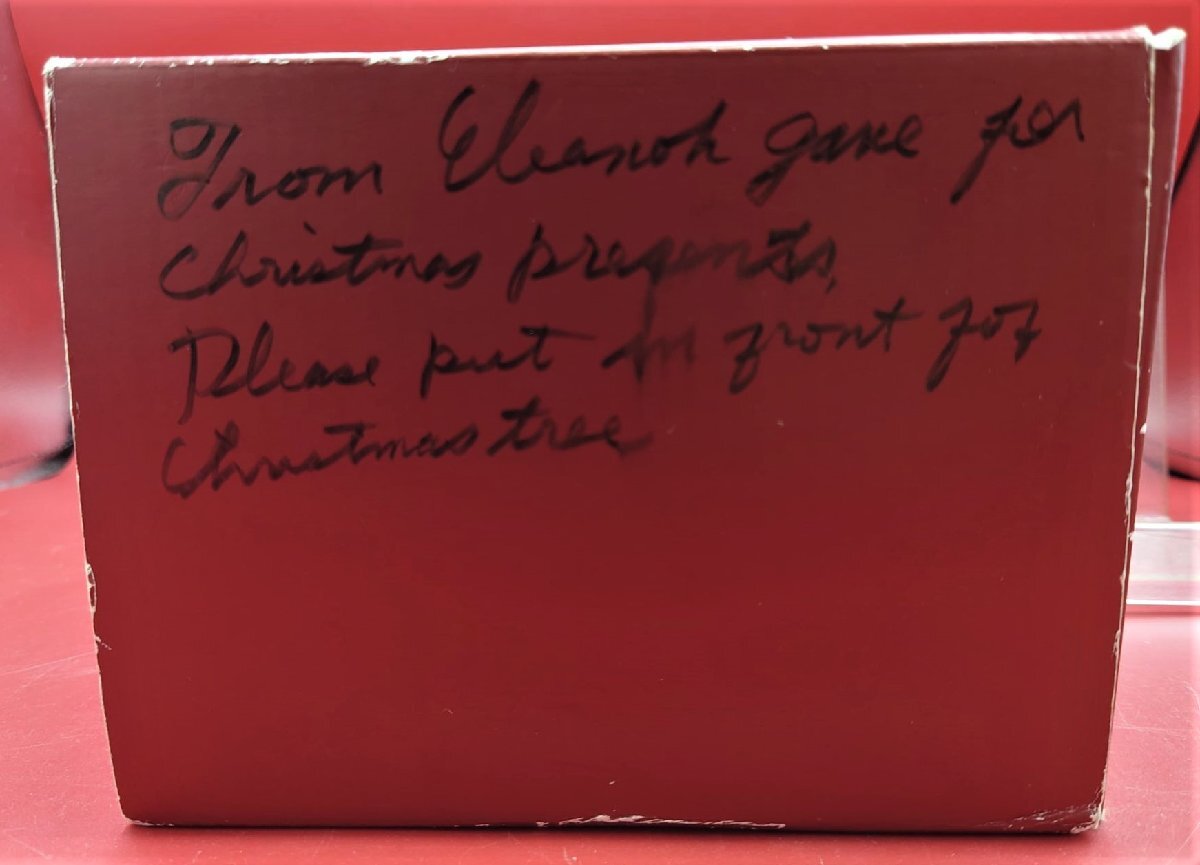 From Eleanor gave for
Christmas presents,
Please put in front fof
Christmas tree